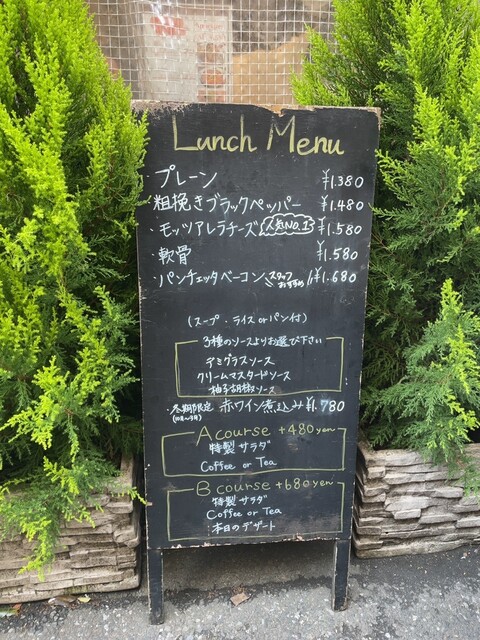 Lunch Menu
・プレーン ¥1.380
・粗挽きブラックペッパー ¥1.480
・モッツアレラチーズ 人気NO.1 ¥1.580
・軟骨 ¥1.580
・パンチェッタベーコン スタッフおすすめ ¥1.680
(スープ・ライスorパン付)
3種のソースよりお選び下さい
デミグラスソース
クリームマスタードソース
柚子胡椒ソース
・冬期限定 赤ワイン煮込み ¥1.780
A course +480yen
特製サラダ
Coffee or Tea
B course +680yen
特製サラダ
Coffee or Tea
本日のデザート